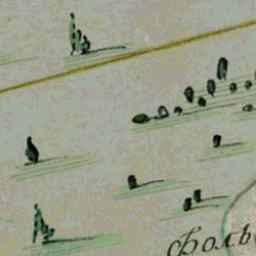 Фоль